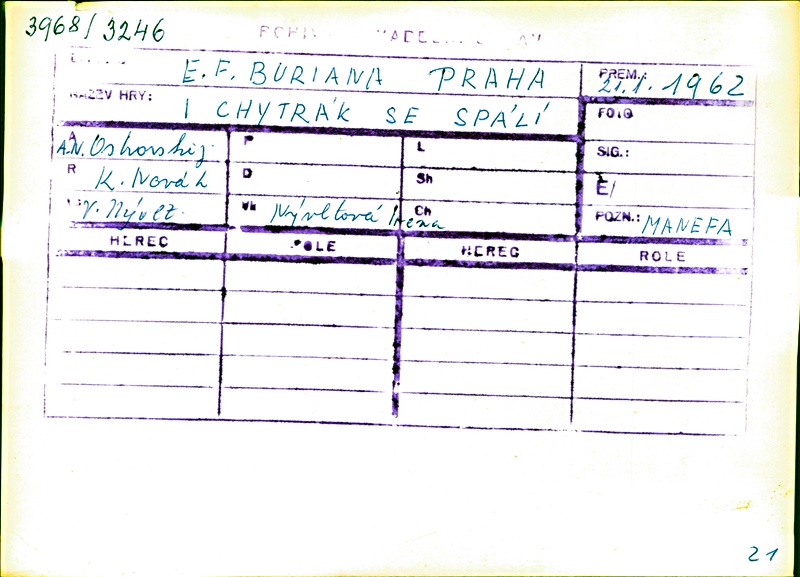 3968/3246
E. F. BURIANA PRAHA
PREM.: 21.1.1962
NÁZEV HRY: I CHYTRÁK SE SPÁLÍ
FOTO
A A.N. Ostrovskij P L SIG.:
R K. Novák D Sh
V. Nývlt Vk Nývltová Irena Ch POZN.: MANEFA
HEREC ROLE HEREC ROLE
21